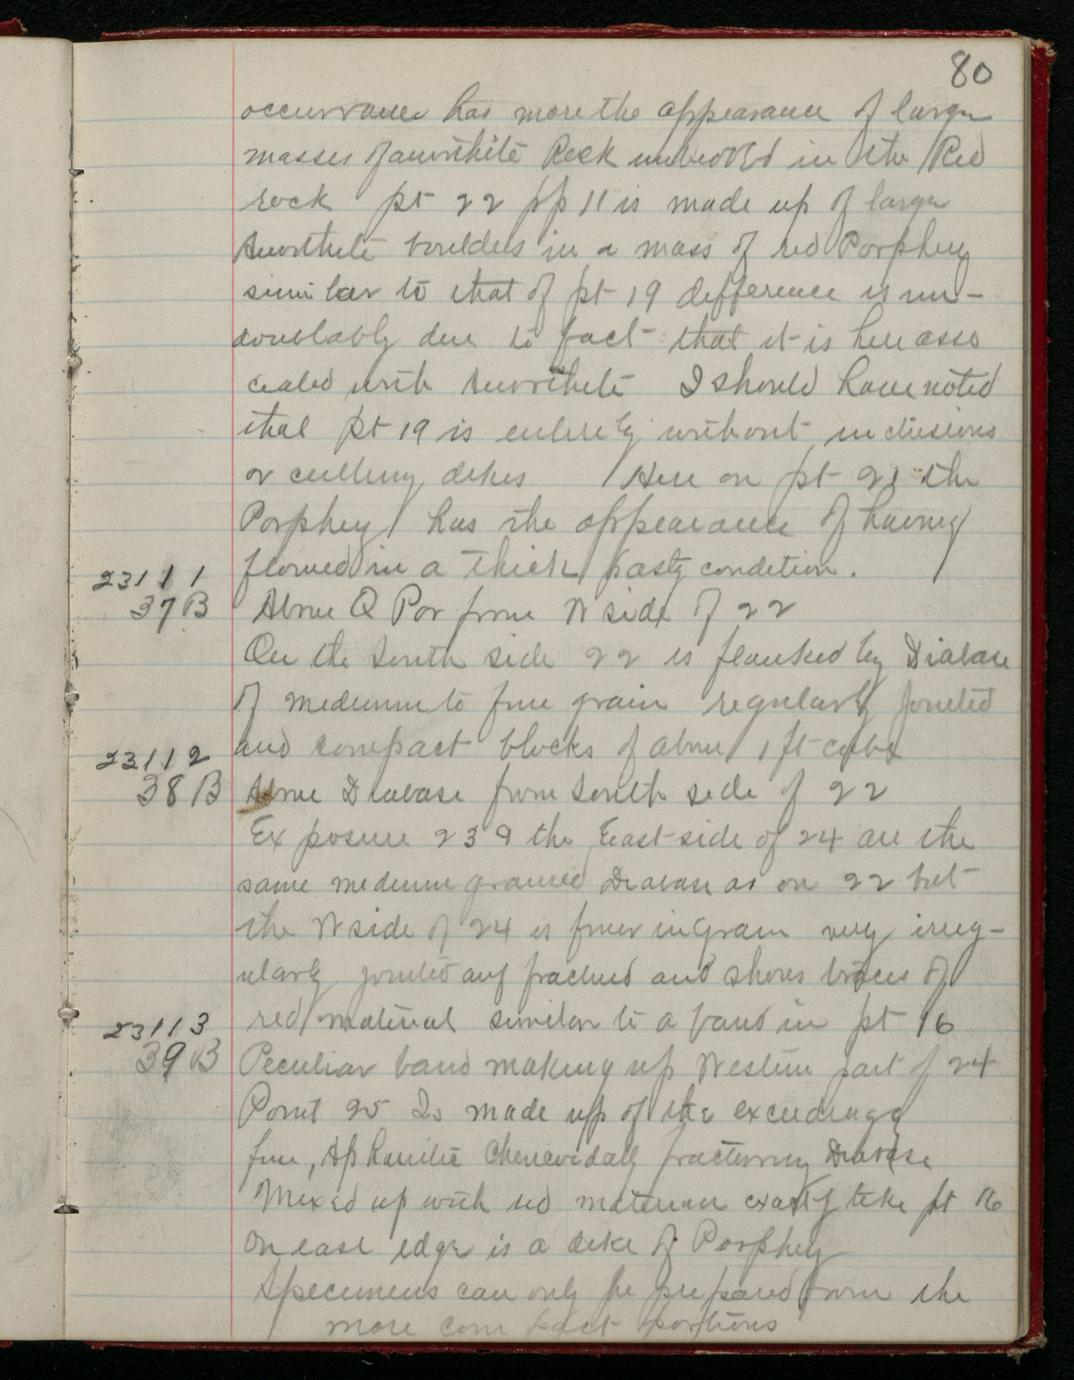 80
occurrance has more the appearance of large
masses of anorthite Rock imbedded in the Red
rock pt 22 pp 11 is made up of large
Anorthite boulders in a mass of red Porphey
similar to that of pt 19 difference is un-
doubtably due to fact that it is here asso
ciated with Anorthite I should have noted
that pt 19 is entirely without inclusions
or cutting dikes Here on pt 21 the
Porphey has the appearance of having
flowed in a thick pasty condition.
23111
37B Above Q Por from N side of 22
On the South side 22 is flanked by Diabase
of medium to fine grain regularly jointed
and compact blocks of about 1 ft cube
23112
38B Above Diabase from South side of 22
Exposure 23 & the East side of 24 are the
same medium grained Diabase as on 22 but
the N side of 24 is finer in grain very irreg-
ularly jointed and fractured and shows traces of
red material similar to a band in pt 16
23113
39B Peculiar band making up Western part of 24
Point 25 Is made up of the exceedingly
fine, Aphanitic fracturing Diabase
Mixed up with red material exactly like pt 16
On east edge is a dike of Porphey
Specimens can only be prepared from the
more compact portions